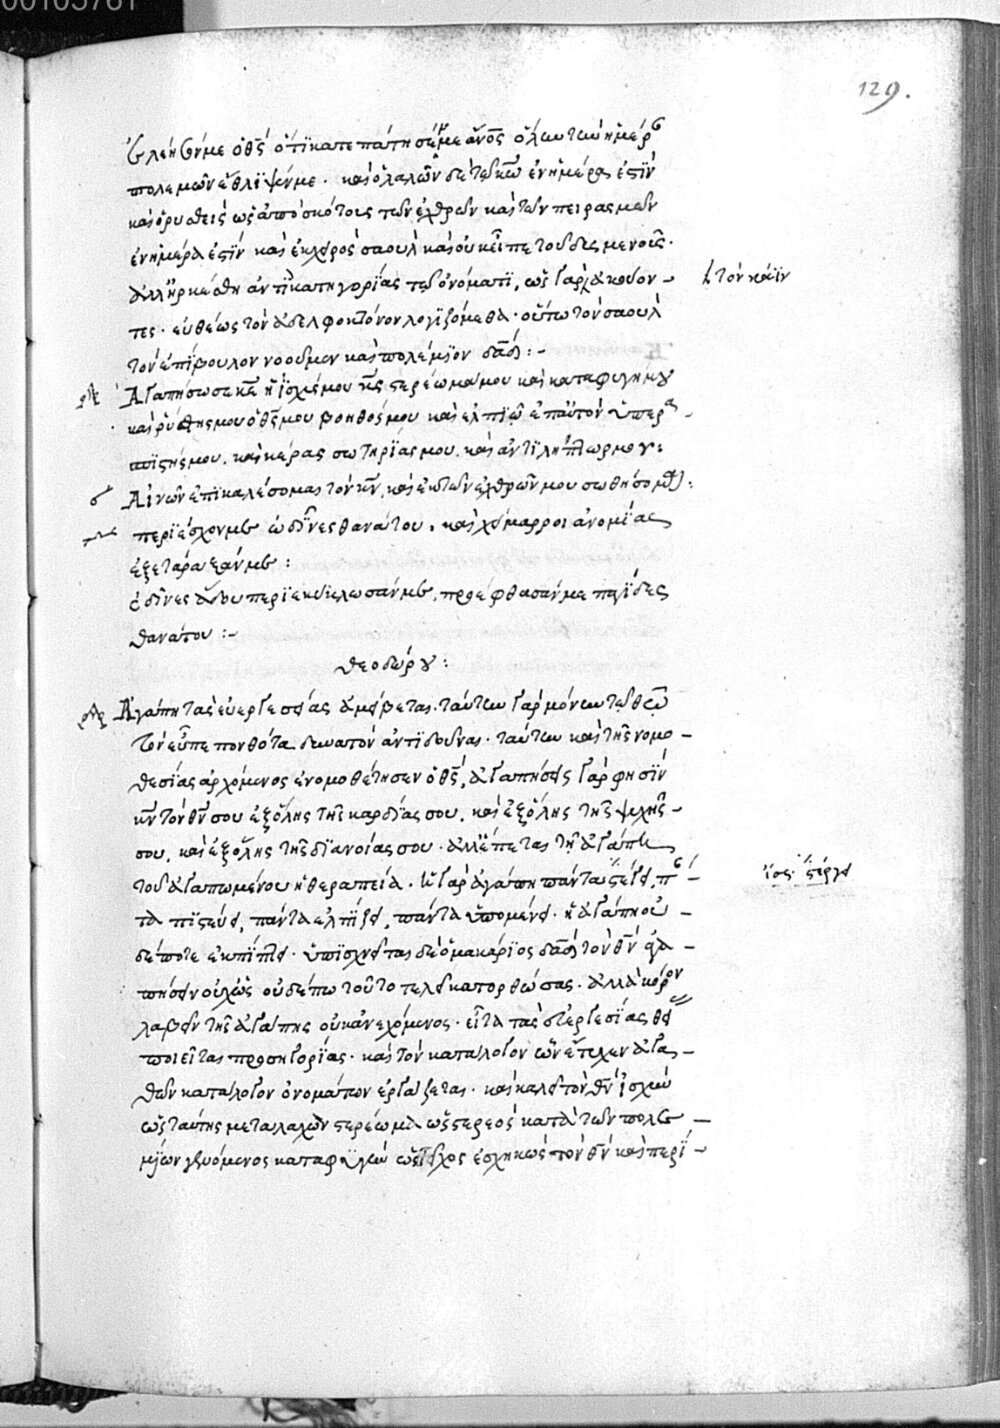 129.
ἐλέησόν με ὁ θς ὅτι κατεπάτησέ με ἄνος ὅλην τὴν ἡμέρ
πολεμῶν ἔθλιψέν με. καὶ ὁ λαλῶν δὲ τῶ κω ἐν ἡμέρα ἐστὶν
καὶ ὁ ρυσθεὶς ὡς ἀπὸ σκότους τῶν ἐχθρῶν καὶ τῶν πειρασμῶν
ἐν ἡμέρα ἐστὶν καὶ ἐκ χειρὸς σαουλ καὶ οὐκ εἶπε τοῦ
ἀλλ' ἠρκέσθη ἀντὶ κατηγορίας τῶ ὀνόματι, ὡς γὰρ ἀκούον –
τὸν κάϊν
τες. εὐθέως τὸν ἀδελφοκτόνον λογιζόμεθα. οὕτω τὸν σαουλ
τὸν ἐπίβουλον νοοῦμεν καὶ πολέμιον δαδ : –
Ἀγαπήσω σε κε ἡ ἰσχύς μου κς στερέωμά μου καὶ καταφυγή μου
καὶ ρύστης μου ὁ θς μου βοηθός μου καὶ ἐλπιῶ ἐπ' αὐτὸν ὑπερα –
σπιστής μου. καὶ κέρας σωτηρίας μου. καὶ ἀντιλήπτωρ μου :
Αἰνῶν ἐπικαλέσομαι τὸν κν, καὶ ἐκ τῶν ἐχθρῶν μου σωθήσομαι :
περιέσχον με ὠδῖνες θανάτου. καὶ χείμαρροι ἀνομίας
ἐξετάραξάν με :
ὠδῖνες ἅδου περιεκύκλωσάν με, προέφθασάν με παγίδες
θανάτου : –
θεοδώρου :
Ἀγάπη τὰς εὐεργεσίας ἀμείβεται. ταύτην γὰρ μόνην τῶ θω
τὸν εὖ πεπονθότα δυνατὸν ἀντιδοῦναι. ταύτην καὶ τῆς νομο –
θεσίας ἀρχόμενος ἐνομοθέτησεν ὁ θς, ἀγαπήσεις γάρ φησὶν
κν τὸν θν σου ἐξ ὅλης τῆς καρδίας σου, καὶ ἐξ ὅλης τῆς ψυχῆς –
σου, καὶ ἐξ ὅλης τῆς διανοίας σου. ἀλλ' ἕπεται τῆ ἀγάπη
τοῦ ἀγαπωμένου ἡ θεραπεία. ἡ γὰρ ἀγάπη πάντα στέγει, π –
ἴσ. στέργει
τα πιστεύει, πάντα ἐλπίζει, πάντα ὑπομένει. ἡ ἀγάπη οὐ –
δέποτε ἐκπίπτει. ὑπισχνεῖται δὲ ὁ μακάριος δαδ τὸν θν ἀγα –
πήσειν οὐχ ὡς οὐδέπω τοῦτο τελεῖ κατορθώσας. ἀλλὰ κόρον
λαβεῖν τῆς ἀγάπης οὐκ ἀνεχόμενος. εἶτα τὰς εὐεργεσίας θεῖ
ποιεῖται προσηγορίας. καὶ τὸν κατάλογον ὧν ἔτυχεν ἀγα –
θῶν κατάλογον ὀνομάτων ἐργάζεται. καὶ καλεῖ τὸν θν ἰσχὺν
ὡς ταύτης μεταλαχὼν στερέωμα ὡς στερεὸς κατὰ τῶν πολε –
μίων γενόμενος καταφυγὴν ὡς τεῖχος ἐσχηκὼς τὸν θν καὶ περί –